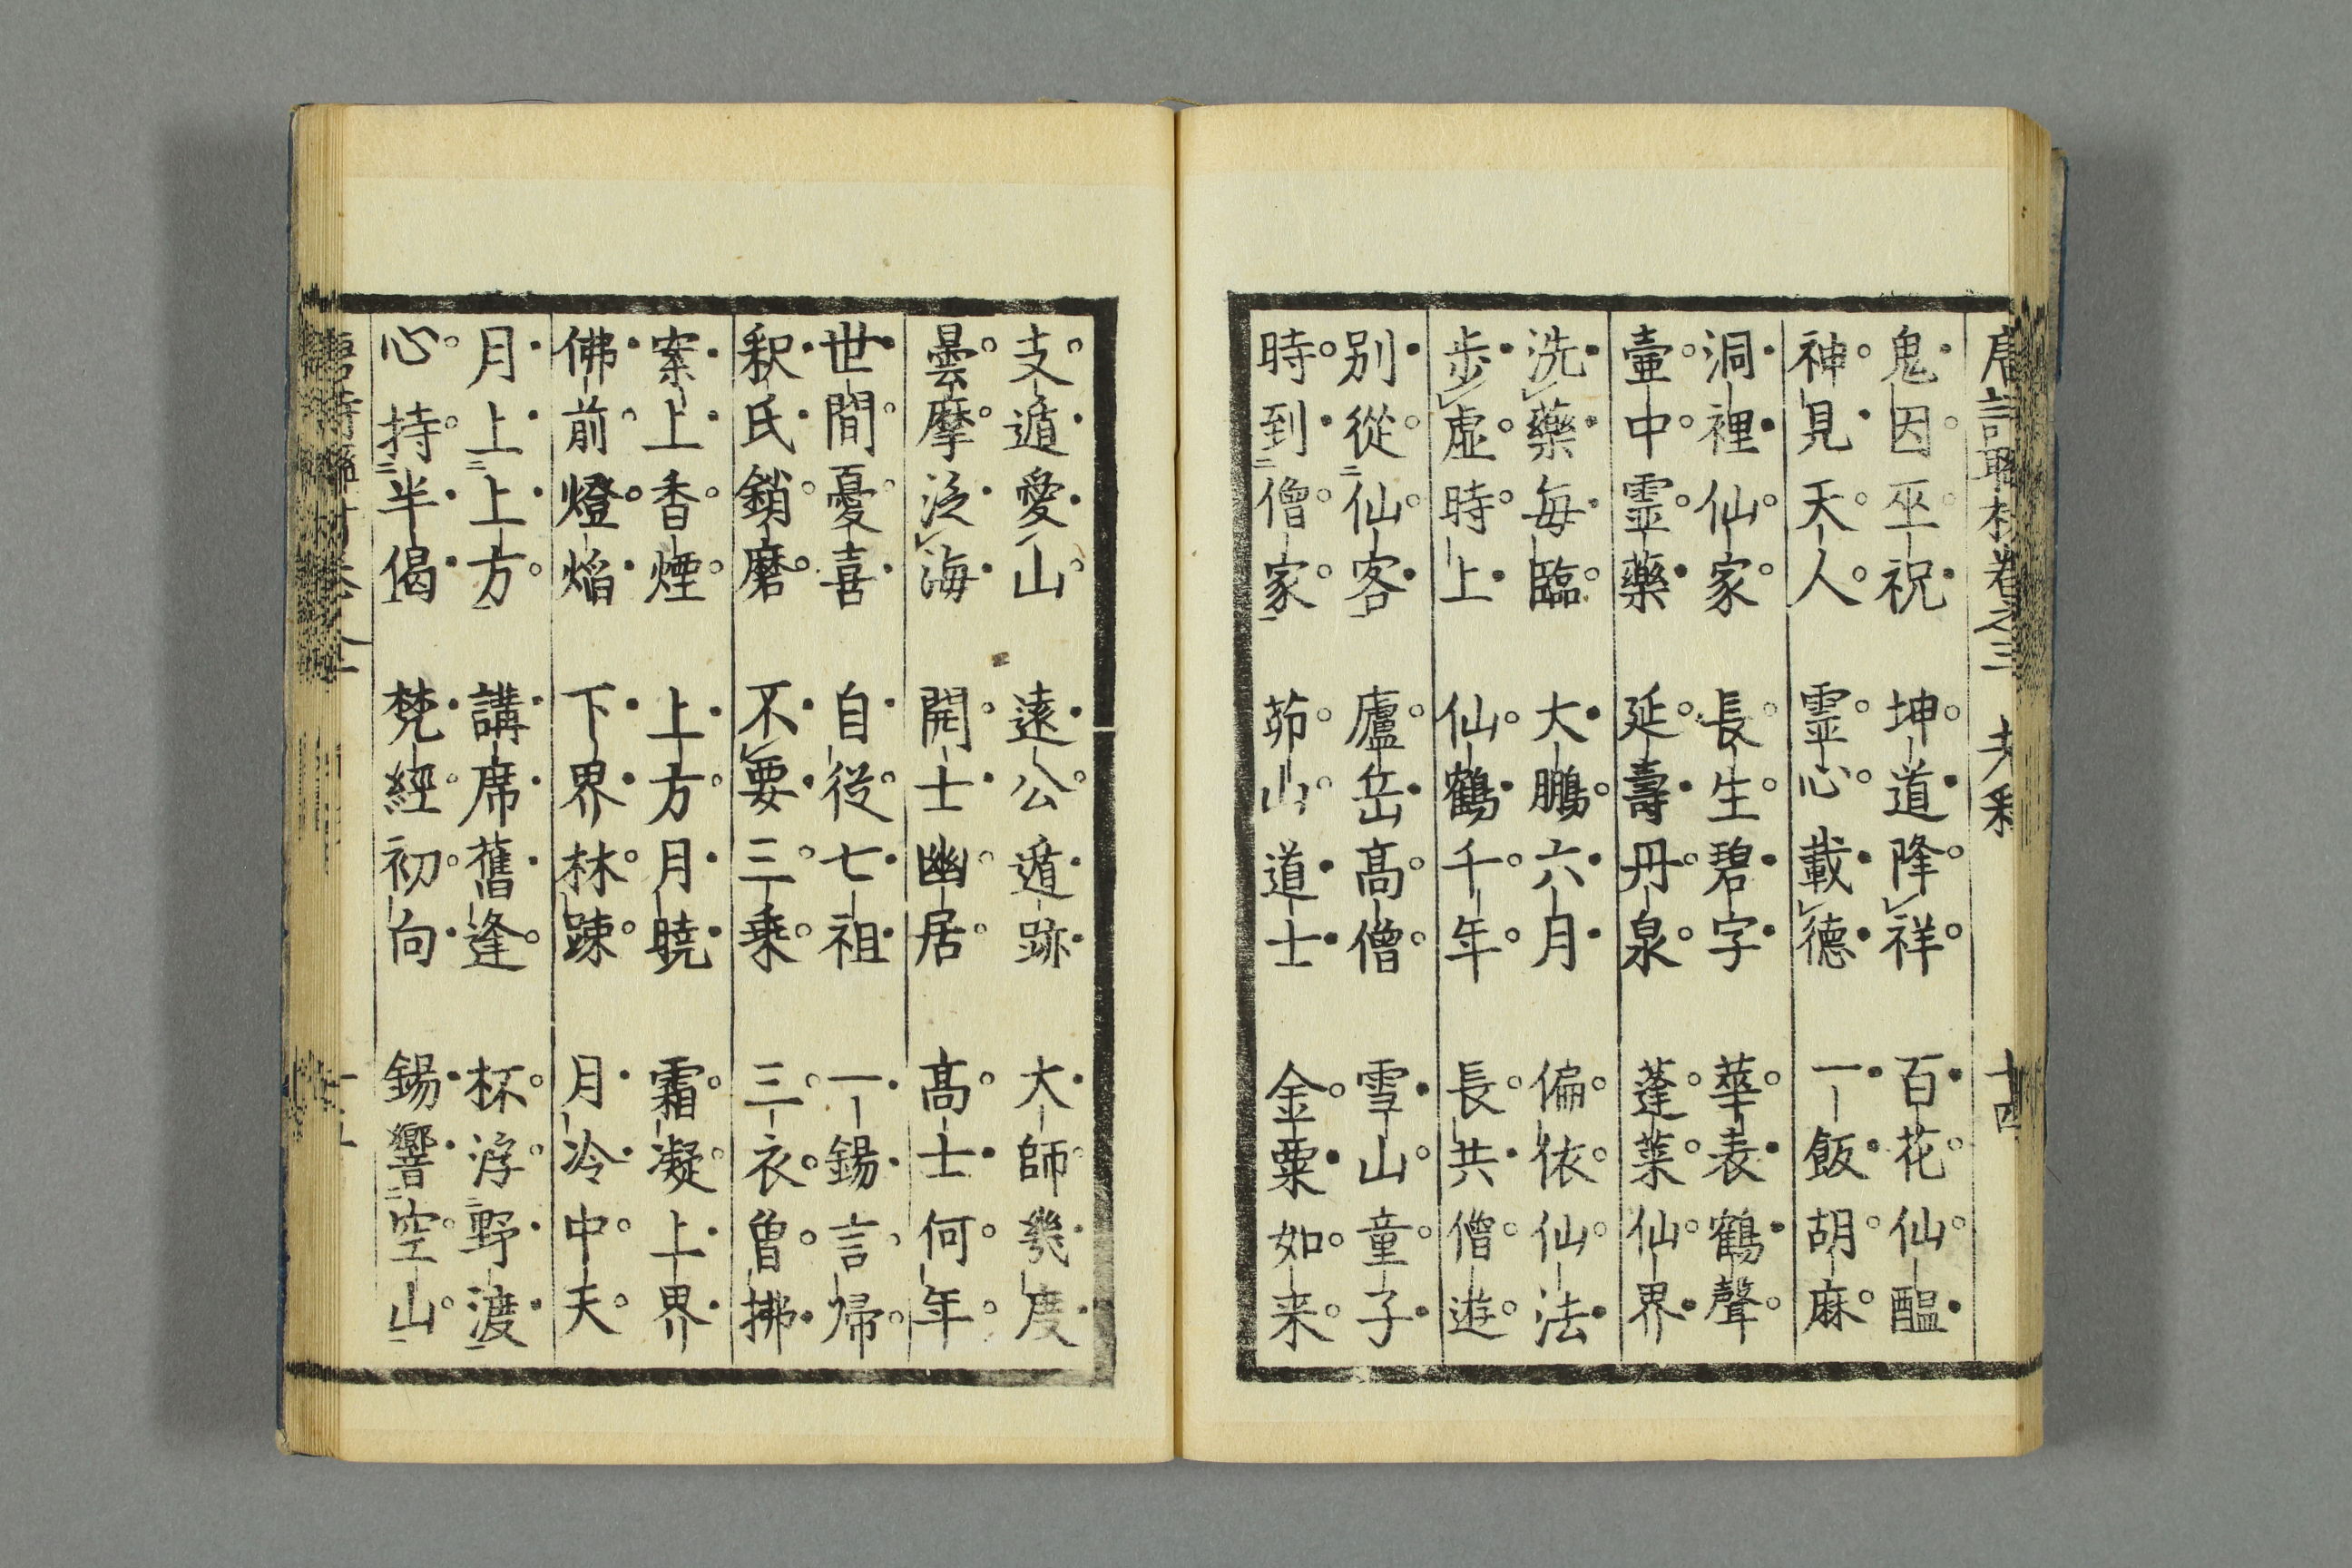 鬼因巫祝 坤道降祥 百花仙醞
神見天人 霊心載德 一飯胡麻
洞裡仙家 長生碧字 華表鶴聲
壷中霊藥 延壽丹泉 蓬莱仙界
洗藥毎臨 大鵬六月 偏依仙法
歩虚時上 仙鶴千年 長共僧遊
别從仙客 廬岳高僧 雪山童子
時到僧家 茆山道士 金粟如来
支遁愛山 遠公遁跡 大師幾度
曇摩泛海 開士幽居 高士何年
世間憂喜 自從七祖 一錫言帰
釈氏銷磨 不要三乗 三衣曽拂
案上香煙 上方月暁 霜凝上界
佛前燈焔 下界林踈 月冷中天
月上上方 講席舊逢 杯浮野渡
心持半偈 梵經初向 錫響空山